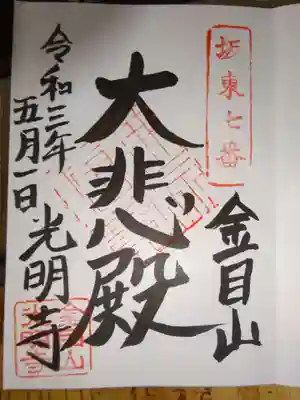 坂東七番
金目山
大悲殿
光明寺
令和三年
五月一日